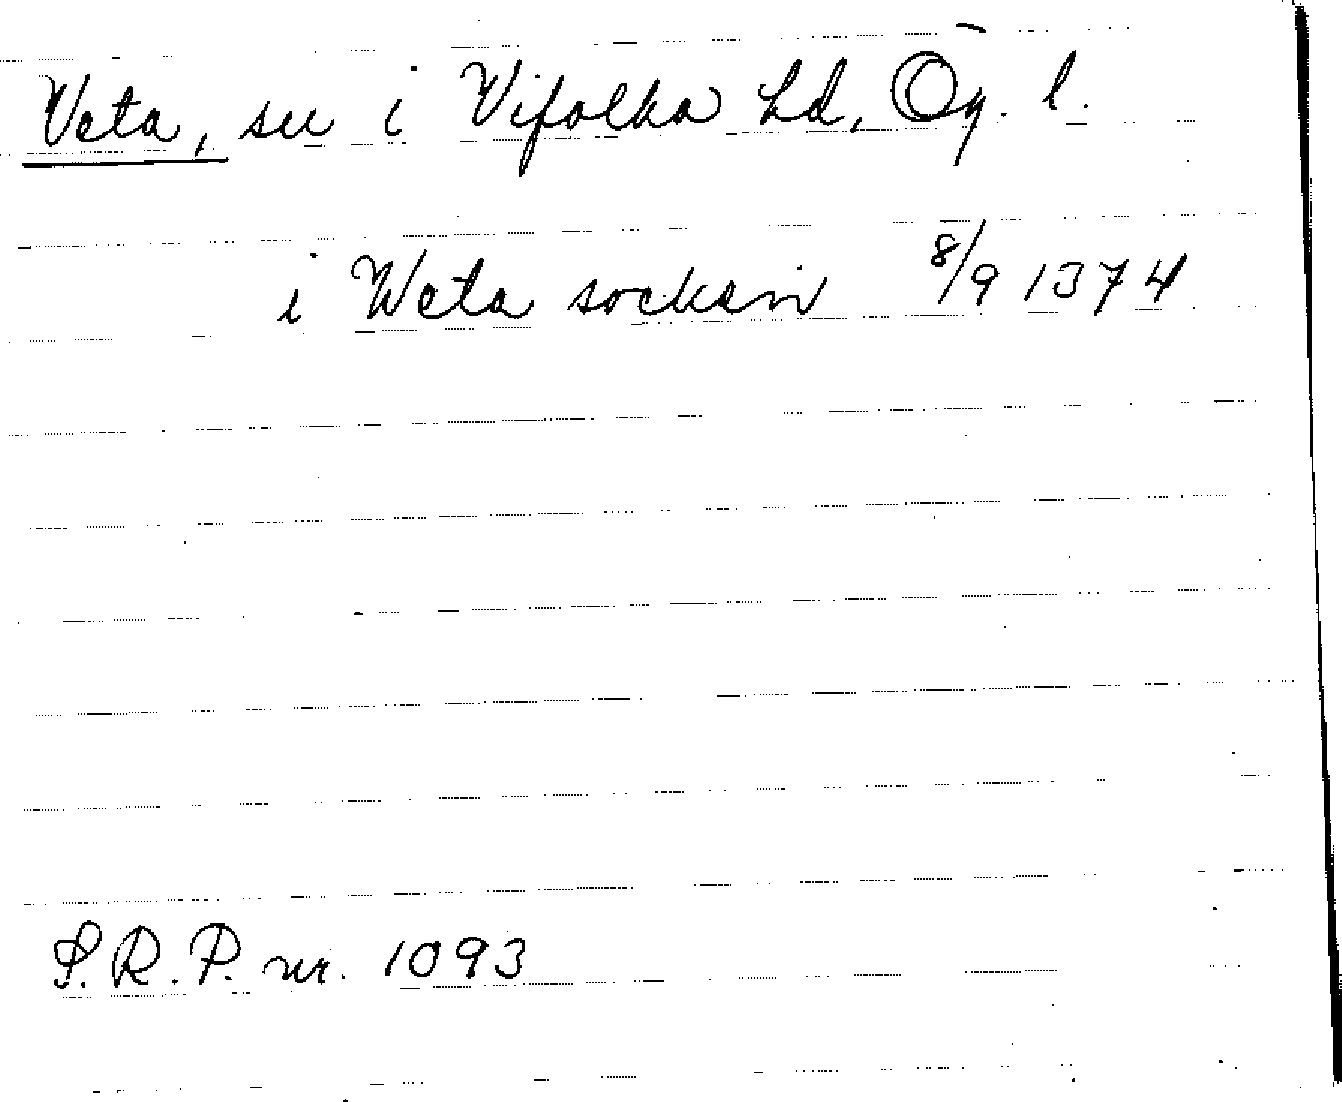 Veta, sn i Vifolka hd, Ög. l.
i Weta sokn 8/9 1374
S.R.P. nr. 1093